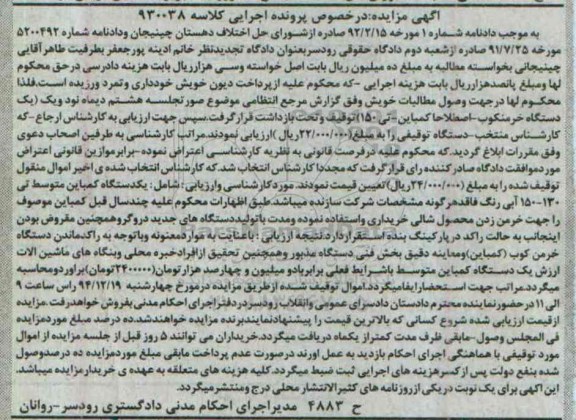 آگهی مزایده: درخصوص پرونده اجرایی کلاسه ۹۳۰۰۳۸
به موجب دادنامه شماره ۱ مورخه ۹۲/۲/۱۵ صادره ازشورای حل اختلاف دهستان چینیجان ودادنامه شماره ۵۲۰۰۴۹۲
مورخه ۹۱/۷/۲۵ صادره ازشعبه دوم دادگاه حقوقی رودسربعنوان دادگاه تجدیدنظر خانم ادینه پورجعفر بطرفیت طاهرآقایی
چینیجانی بخواسته مطالبه به مبلغ ده میلیون ریال بابت اصل خواسته وسی هزارریال بابت هزینه دادرسی درحق محکوم
لها ومبلغ پانصدهزارریال بابت هزینه اجرایی -که محکوم علیه ازپرداخت دیون خویش خودداری وتمرد ورزیده است.فلذا
محکوم لها درجهت وصول مطالبات خویش وفق گزارش مرجع انتظامی موضوع صورتجلسه هشتم دیماه نود ویک (یک
دستگاه خرمنکوب-اصطلاحا کمباین-تی ۱۵۰) توقیف وتحت بازداشت قرارگرفت.سپس جهت ارزیابی به کارشناس ارجاع -که
کارشناس منتخب-دستگاه توقیفی را به مبلغ(۲۲/۰۰۰/۰۰۰ریال )ارزیابی نمودند.مراتب کارشناسی به طرفین اصحاب دعوی
وفق مقررات ابلاغ گردید.که محکوم علیه درفرصت قانونی به نظریه کارشناسی اعتراض نموده -برابرموازین قانونی اعتراض
موردموافقت دادگاه صادرکننده رای قرارگرفت که مجددا کارشناس انتخاب شد.که کارشناس انتخاب شده ی اخیر اموال منقول
توقیف شده را به مبلغ (۲۴/۰۰۰/۰۰۰ریال)تعیین قیمت نمودند. موردکارشناسی وارزیابی : شامل : یکدستگاه کمباین متوسط تی
۱۳۰-۱۵۰ آبی رنگ فاقدهرگونه مشخصات شرکت سازنده میباشد.طبق اظهارات محکوم علیه چندسال قبل کمباین موصوف
را جهت خرمن زدن محصول شالی خریداری واستفاده نموده ومدت باتولیددستگاه های جدید دروگروهمچنین مقروض بودن
اینجانب به حالت راکد در پارکینگ بنده استقراردارد.نتیجه ارزیابی : باعنایت به مواردمعنونه وباتوجه به راکدماندن دستگاه
خرمن کوب (کمباین)ومعاینه دقیق بخش فنی دستگاه مذبور وهمچنین تحقیق ازافرادخبره محلی وبنگاه های ماشین الات
ارزش یک دستگاه کمباین متوسط باشرایط فعلی برابربادو میلیون و چهارصد هزارتومان(۲۴۰۰۰۰۰تومان)برآوردومحاسبه
میگردد.مراتب جهت استحضارایفامیگردد.اموال توقیف شده ازطریق مزایده درمورخ چهارشنبه ۹۴/۱۲/۱۹ راس ساعت ۹
الی ۱۱ درحضورنماینده محترم دادستان دادسرای عمومی وانقلاب رودسردردفتراجرای احکام مدنی بفروش خواهدرفت.مزایده
ازقیمت ارزیابی شده شروع کسانی که بالاترین قیمت را پیشنهادنمایندبرنده مزایده خواهندشد.ده درصد مبلغ موردمزایده
فی المجلس وصول-مابقی ظرف مدت کمتراز یکماه دریافت میگردد.خریداران می توانند ۵ روز قبل از جلسه مزایده از اموال
مورد توقیفی با هماهنگی اجرای احکام بازدید به عمل اورند درصورت عدم پرداخت مابقی مبلغ موردمزایده ده درصدوصول
شده بنفع دولت پس ازکسرهزینه های اجرایی ثبت ضبط میگردد.کلیه هزینه های متعلقه به عهده ی خریدار مزایده میباشد.
این آگهی برای یک نوبت دریکی ازروزنامه های کثیرالانتشار محلی درج ومنتشرمیگردد.
ح ۴۸۸۳ مدیراجرای احکام مدنی دادگستری رودسر-روانان